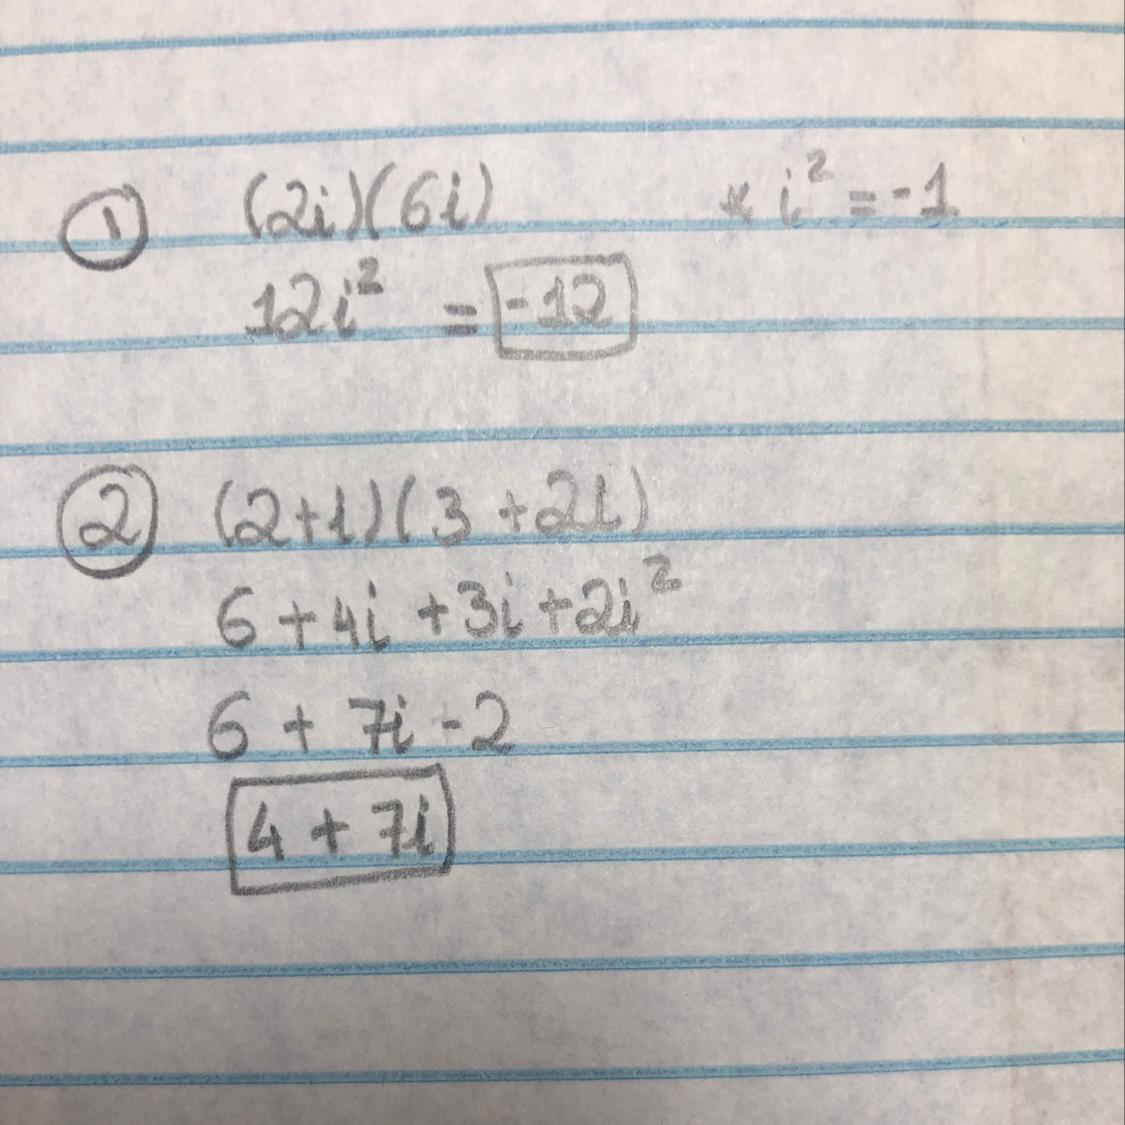 ① (2i)(6i) * i² = -1
12i² = -12
② (2+i)(3+2i)
6 + 4i + 3i + 2i²
6 + 7i - 2
4 + 7i